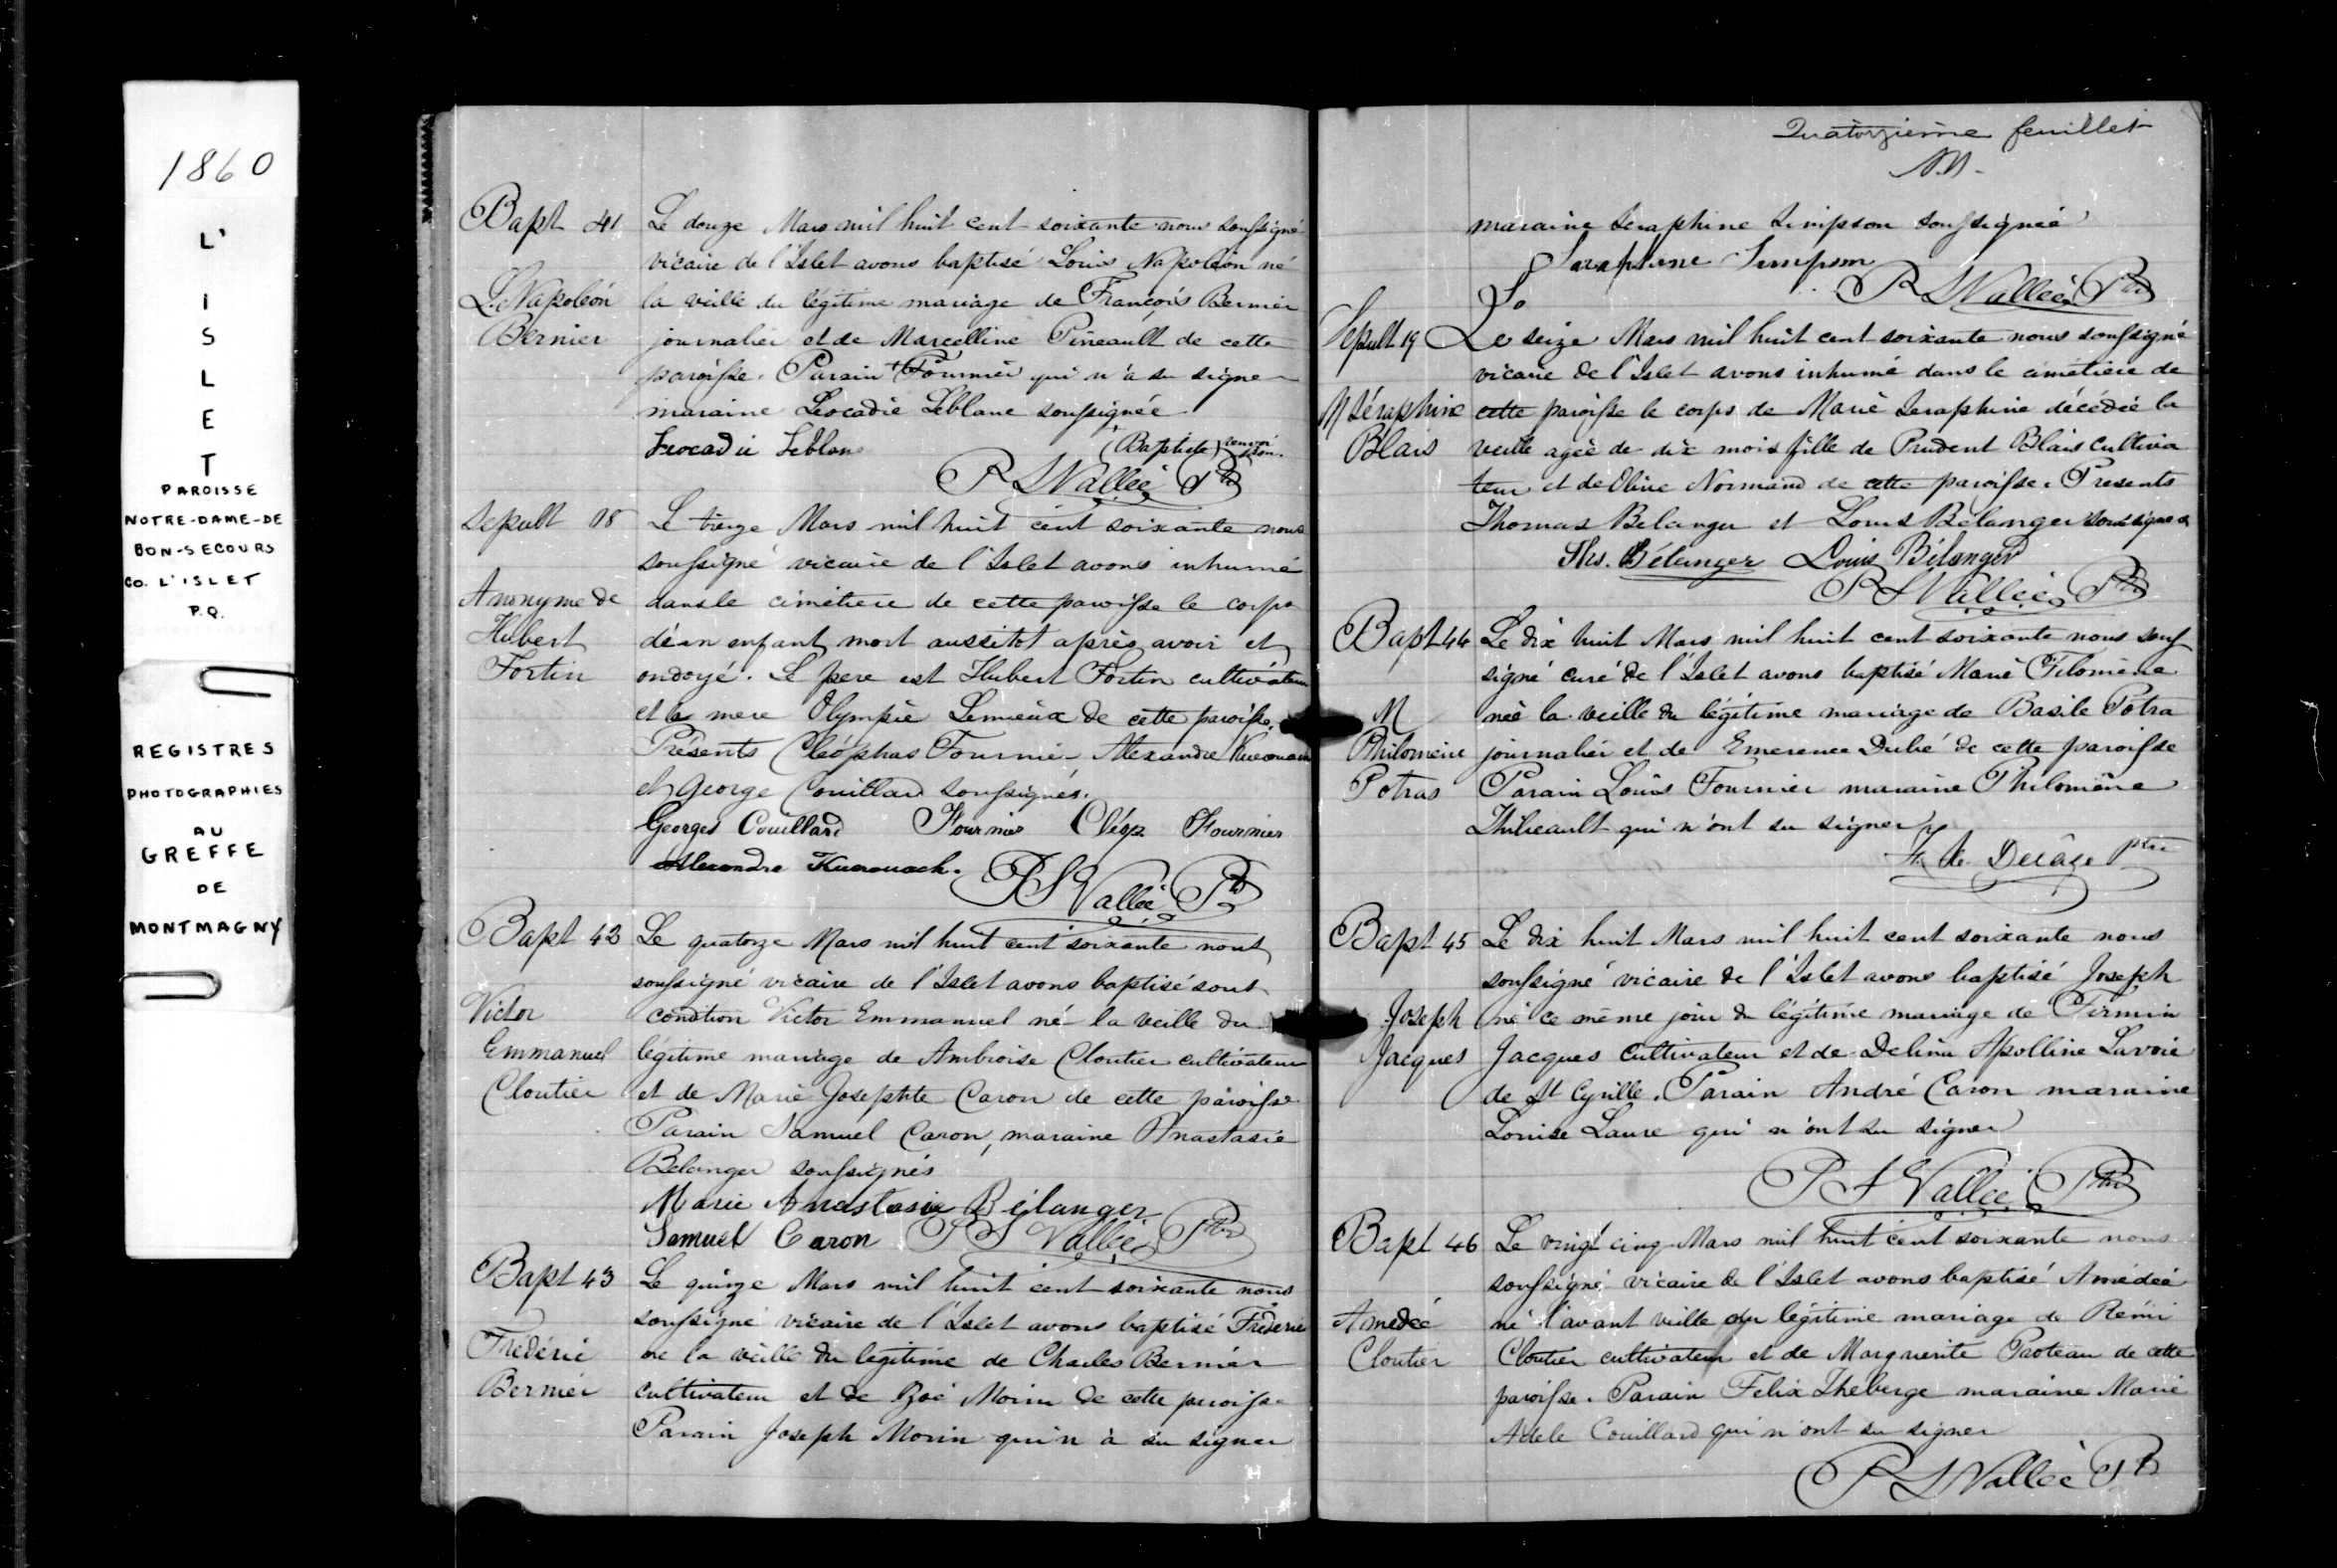 1860
L'
I
S
L
E
T
PAROISSE
NOTRE-DAME-DE
BON-SECOURS
CO. L'ISLET
P.Q.
REGISTRES
PHOTOGRAPHIES
AU
GREFFE
DE
MONTMAGNY
Bapt 41
L. Napoléon
Bernier
Le douze Mars mil huit cent soixante nous soussigné
vicaire de l'Islet avons baptisé Louis Napoléon né
la veille du légitime mariage de François Bernier
journalier et de Marcelline Pineault de cette
paroisse. Parain + Fournier qui n'a su signer
maraine Leocadie Leblanc soussignée
Leocadie Leblanc
(Baptiste) renvoi bon.
P S Vallée Ptre
Sepult 18
Anonyme de
Hubert
Fortin
Le treize Mars mil huit cent soixante nous
soussigné vicaire de l'Islet avons inhumé
dans le cimetiere de cette paroisse le corps
de un enfant mort aussitot après avoir et
ondoyé. Le pere est Hubert Fortin cultivateur
et la mere Olympie Lemieux de cette paroisse,
Présents Cléophas Fournier Alexandre Kirouack
et George Couillard soussignés.
Georges Couillard Fournier Cléop Fournier
Alexandre Kuerouack.
P S Vallée Ptre
Bapt 42
Victor
Emmanuel
Cloutier
Le quatorze Mars mil huit cent soixante nous
soussigné vicaire de l'Islet avons baptisé sous
condition Victor Emmanuel né la veille du
légitime mariage de Ambroise Cloutier cultivateur
et de Marie Josephte Caron de cette paroisse
Parain Samuel Caron, maraine Anastasie
Belanger soussignés
Marie Anastasie Bélanger
Samuel Caron P S Vallée Ptre
Bapt 43
Frédéric
Bernier
Le quinze Mars mil huit cent soixante nous
soussigné vicaire de l'Islet avons baptisé Fréderic
né la veille du legitime de Charles Bernier
cultivateur et de Zoé Morin de cette paroisse
Parain Joseph Morin qui n'a su signer
Quatorzième feuillet
maraine Seraphine Simpson soussignée
Seraphine Simpson
P S Vallée Ptre
Sepult 19
M Séraphine
Blais
Le seize Mars mil huit cent soixante nous soussigné
vicaire de l'Islet avons inhumé dans le cimétiere de
cette paroisse le corps de Marie Seraphine décédée la
veille agée de dix mois fille de Prudent Blais cultiva
teur et de Olive Normand de cette paroisse. Presents
Thomas Belanger et Louis Bélanger soussignés
Ths. Bélanger Louis Bélanger
P S Vallée Ptre
Bapt 44
M
Philomène
Potras
Le dix huit Mars mil huit cent soixante nous sous
signé curé de l'Islet avons baptisé Marie Filomène
née la veille du légitime mariage de Basile Potra
journalier et de Emerence Dubé de cette paroisse
Parain Louis Fournier maraine Philomène
Thibeault qui n'ont su signer
Delâge Ptre
Bapt 45
Joseph
Jacques
Le dix huit Mars mil huit cent soixante nous
soussigné vicaire de l'Islet avons baptisé Joseph
né ce même jour du légitime mariage de Firmin
Jacques cultivateur et de Delina Apolline Lavoie
de St Cyrille. Parain André Caron maraine
Louise Laure qui n'ont su signer
P S Vallée Ptre
Bapt 46
Amedée
Cloutier
Le vingt cinq Mars mil huit cent soixante nous
soussigné vicaire de l'Islet avons baptisé Amédée
né l'avant veille du légitime mariage de Rémi
Cloutier cultivateur et de Marguerite Proteau de cette
paroisse. Parain Felix Theberge maraine Marie
Adele Couillard qui n'ont su signer
P S Vallée Ptre